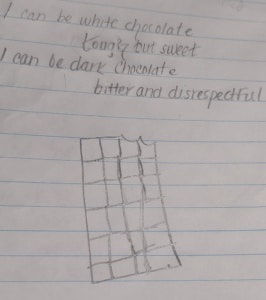 I can be white chocolate
but sweet
I can be dark chocolate
bitter and disrespectful